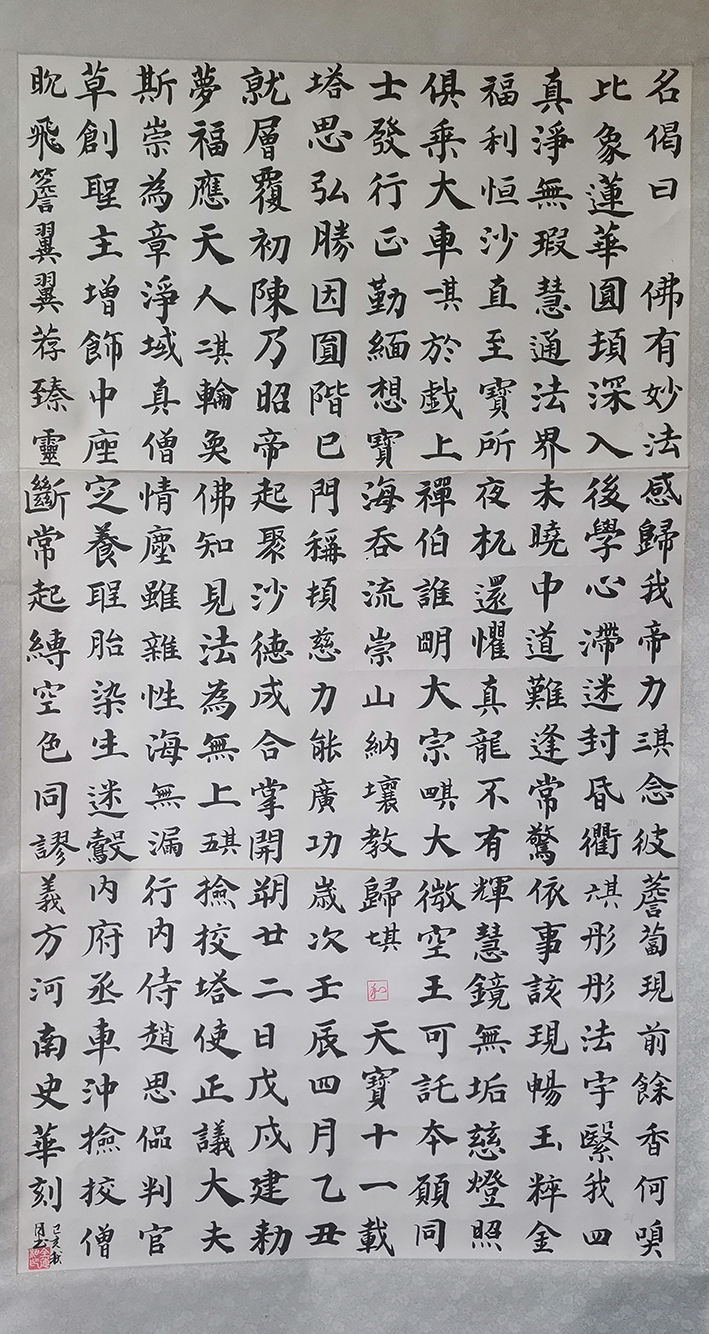 名偈曰 佛有妙法
比象蓮華圓頓深入
真淨無瑕慧通法界
福利恒沙直至寶所
俱乘大車其一於戲上
士發行正勤緬想寶
塔思弘勝因圓階已
就層覆初陳乃昭帝
夢福應天人其二輪奐
斯崇為章淨域真僧
草創聖主增飾中座
眈飛簷翼翼荐臻靈
感歸我帝力其三念彼
後學心滯迷封昏衢
未曉中道難逢常驚
夜杌還懼真龍不有
禪伯誰明大宗其四大
海吞流崇山納壤教
門稱頓慈力能廣功
起聚沙德成合掌開
佛知見法為無上其五
情塵雖雜性海無漏
定養聖胎染生迷鷇
斷常起縛空色同謬
薝蔔現前餘香何嗅
其六彤彤法宇繄我四
依事該現暢玉粹金
輝慧鏡無垢慈燈照
微空王可託本願同
歸其七 和 天寶十一載
歲次壬辰四月乙丑
朔廿二日戊戌建勅
撿挍塔使正議大夫
行內侍趙思偘判官
內府丞車沖撿挍僧
義方河南史華刻
己亥秋